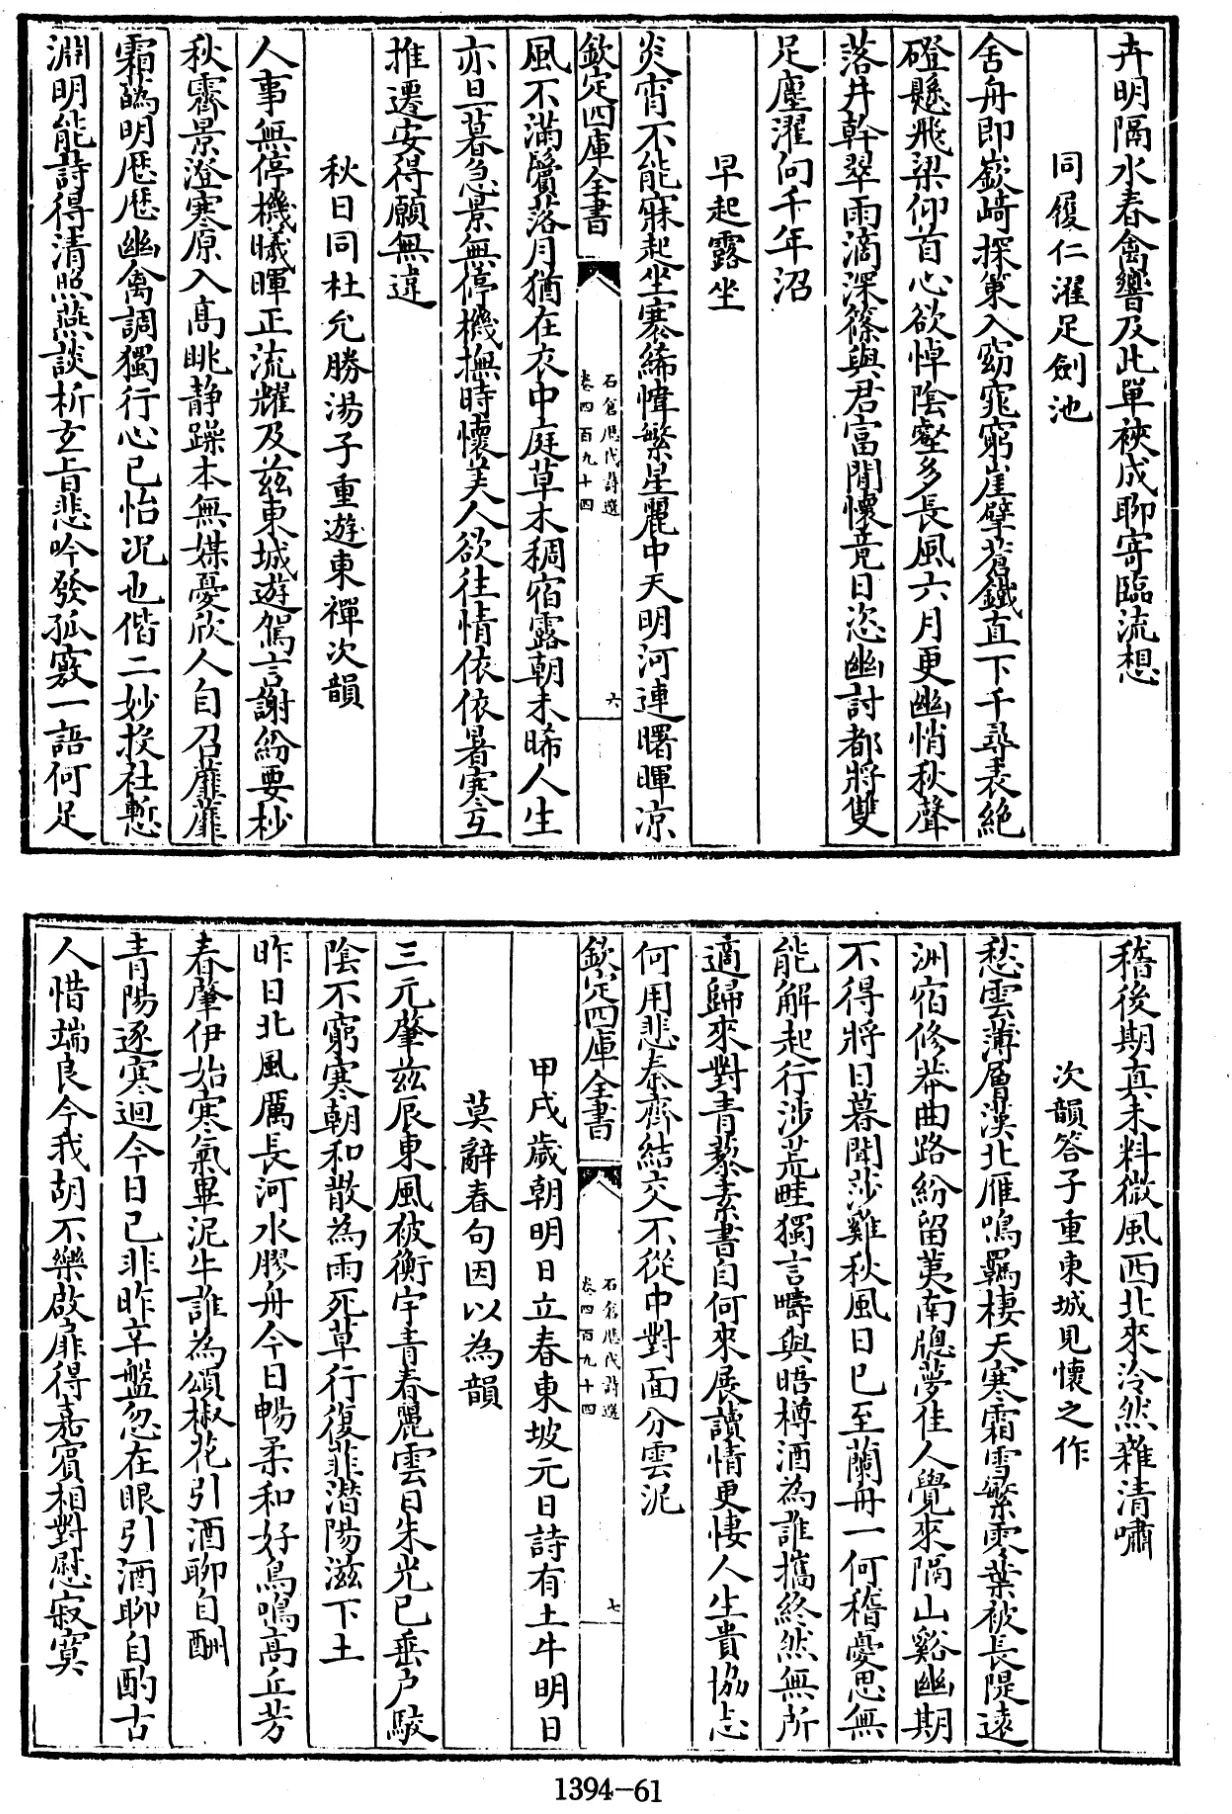 卉明隔水春禽響及此單裌成聊寄臨流想
同履仁濯足劍池
舍舟即嶔崎探策入窈窕窮崖擘蒼鐵直下千尋表絶
磴懸飛梁仰首心欲悼陰壑多長風六月更幽悄秋聲
落井幹翠雨滴深篠與君富閒懷竟日恣幽討都將雙
足塵濯向千年沼
早起露坐
炎宵不能寐起坐褰絺幃繁星麗中天明河連曙暉凉
欽定四庫全書
石倉歷代詩選
卷四百九十四
六
風不滿鬢落月猶在衣中庭草木稠宿露朝未晞人生
亦旦暮急景無停機撫時懷美人欲往情依依暑寒互
推遷安得願無違
秋日同杜允勝湯子重遊東禪次韻
人事無停機曦暉正流耀及兹東城遊駕言謝紛要杪
秋霽景澄寒原入高眺静躁本無媒憂欣人自召蘼蘼
霜蕪明歴歴幽禽調獨行心已怡况也偕二妙投社慙
淵明能詩得清照燕談析玄旨悲吟發孤竅一語何足
稽後期真未料微風西北來泠然雜清嘯
次韻答子重東城見懷之作
愁雲薄層漢北雁鳴羈棲天寒霜雪繁零葉被長隄遠
洲宿修莽曲路紛留荑南牕夢佳人覺來隔山谿幽期
不得將日暮聞莎雞秋風日已至蘭舟一何稽憂思無
能解起行涉荒畦獨言疇與晤樽酒為誰攜終然無所
適歸來對青藜素書自何來展讀情更悽人生貴協志
何用悲秦齊結交不從中對面分雲泥
欽定四庫全書
石倉歷代詩選
卷四百九十四
七
甲戌歲朝明日立春東坡元日詩有土牛明日
莫辭春句因以為韻
三元肇兹辰東風被衡宇青春麗雲日朱光已垂户駸
陰不窮寒朝和散為雨死草行復菲潜陽滋下土
昨日北風厲長河水膠舟今日暢柔和好鳥鳴高丘芳
春肇伊始寒氣畢泥牛誰為頌椒花引酒聊自酬
青陽逐寒迴今日已非昨辛盤忽在眼引酒聊自酌古
人惜端良今我胡不樂啟扉得嘉賓相對慰寂寞
1394-61